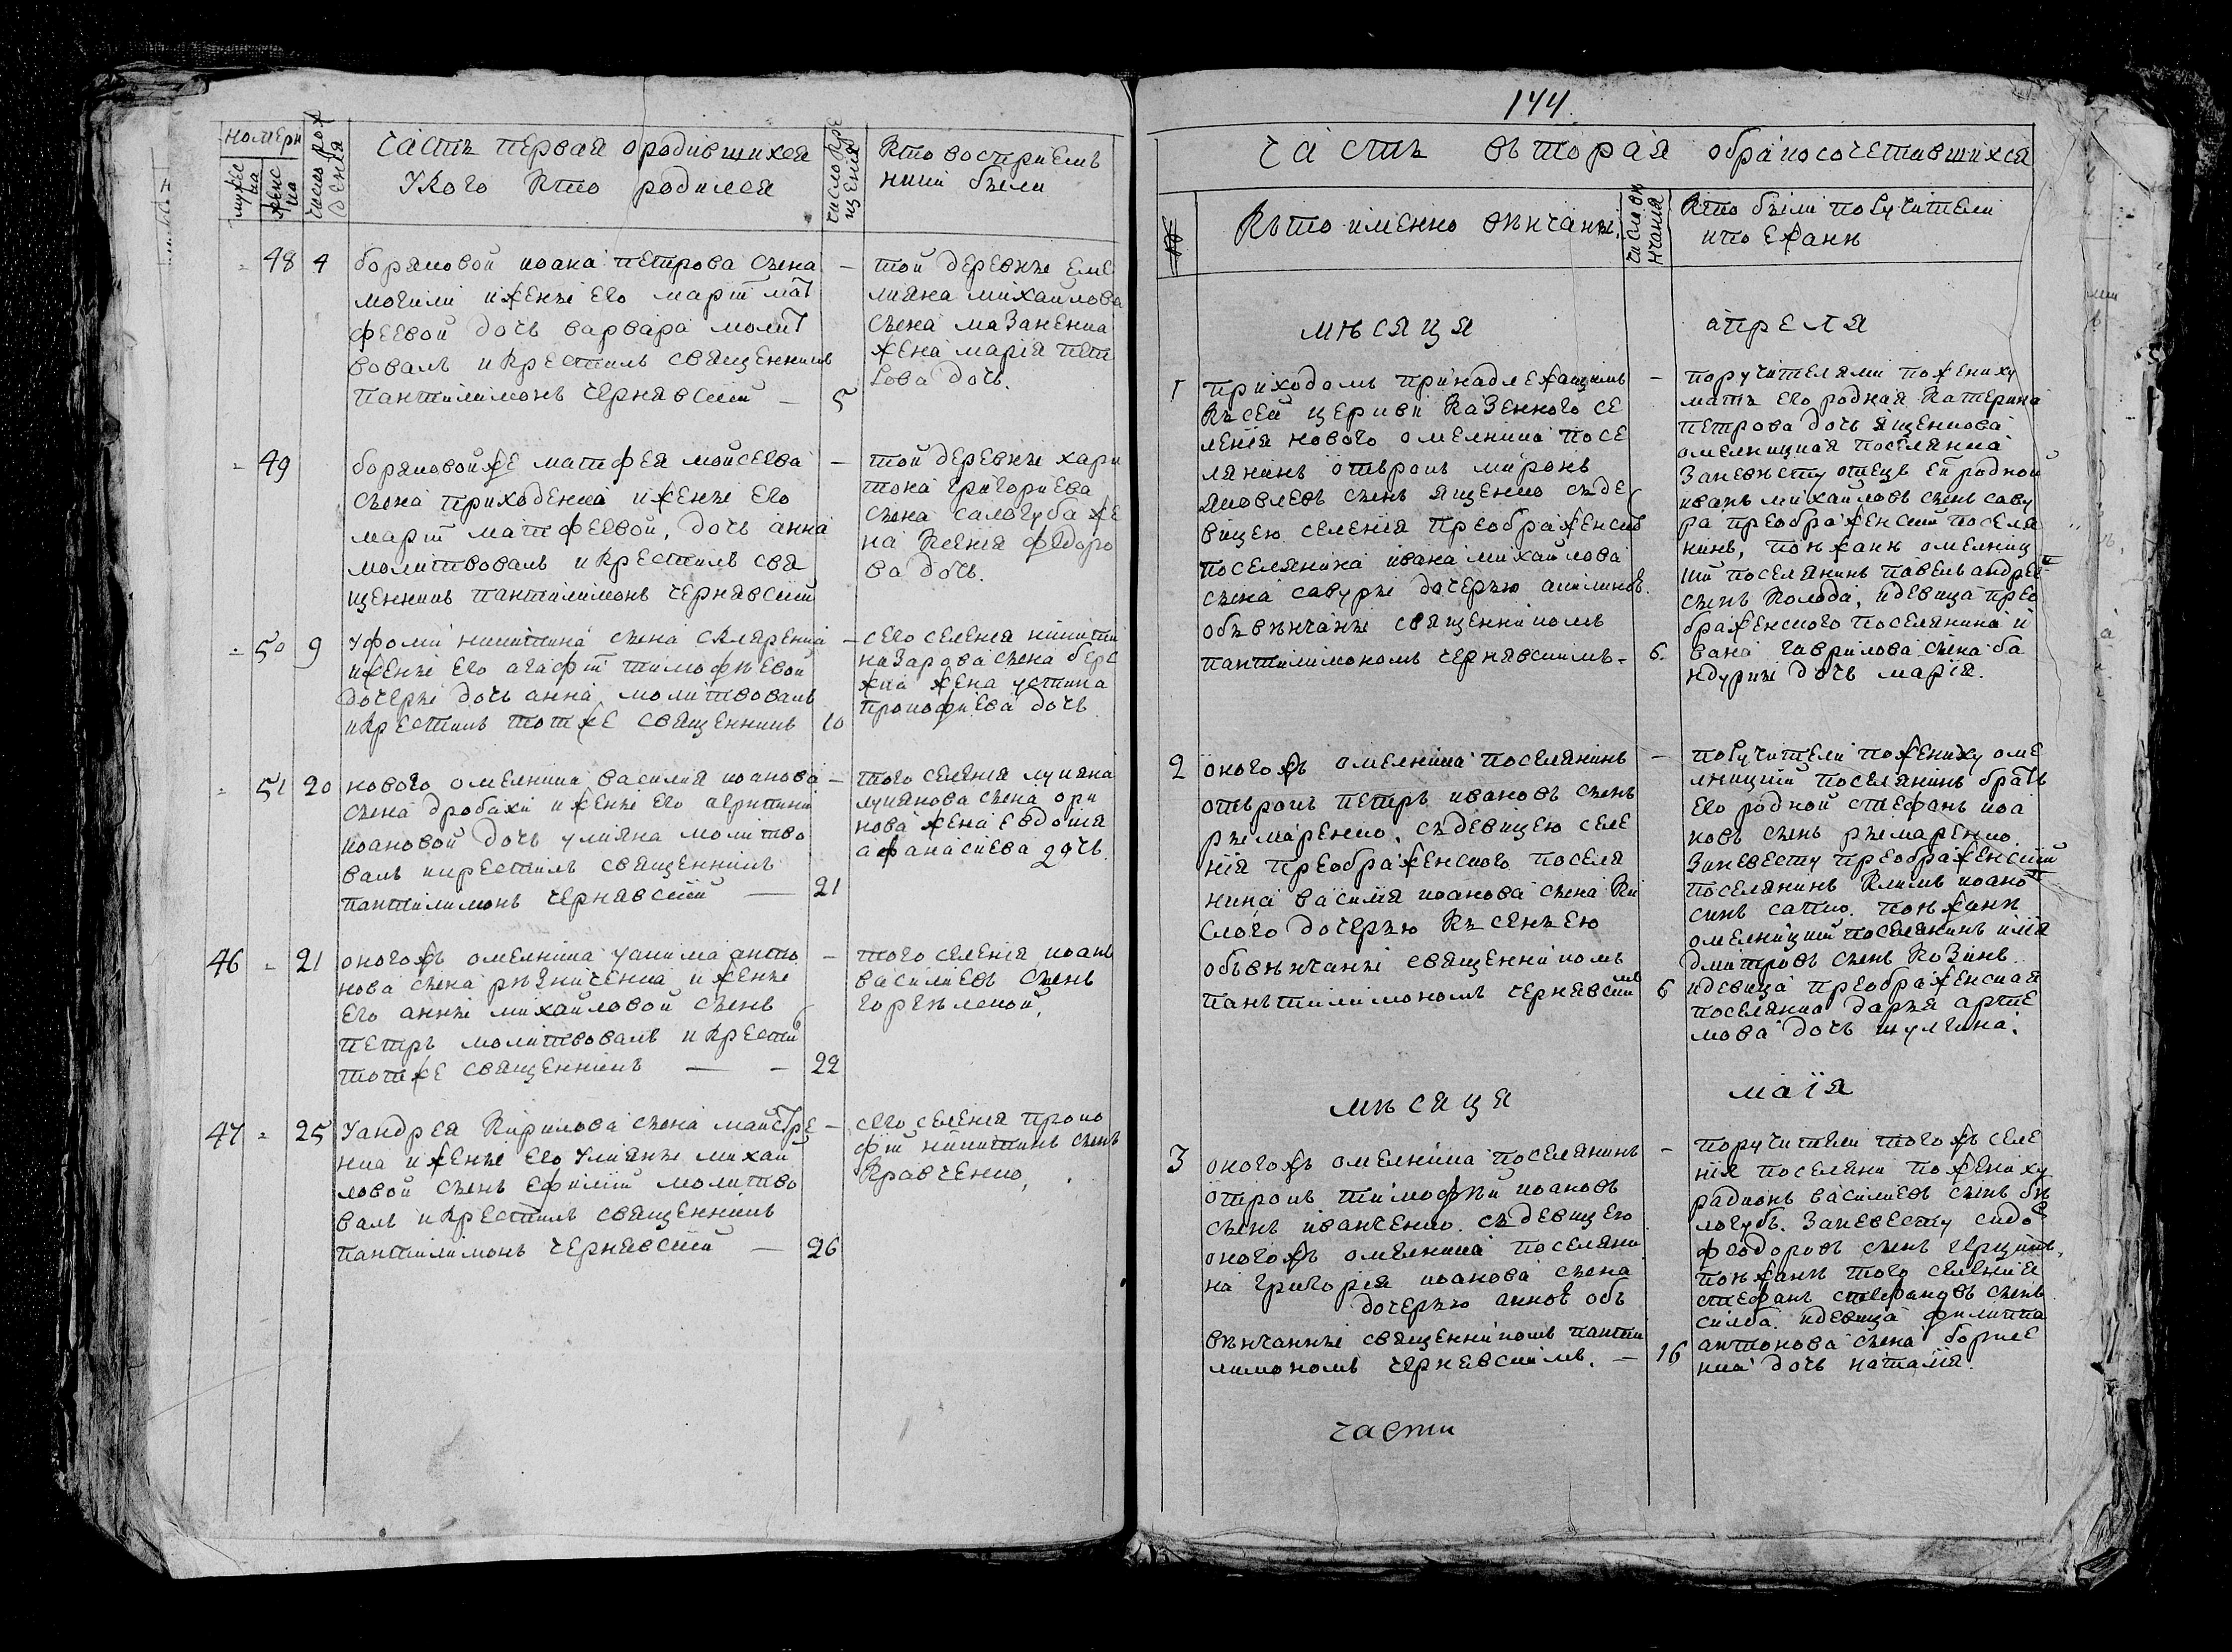 номери
мужес
ка
женс
ка
число рож
денїя
часть первая ородившихся
Укого Кто родился
число Кре
щенїя
Кто восприемъ
ники были
48 4 боряковой иоана петрова сына
могили ижены его марїи мат
феевой дочь варвара молит
вовалъ и Крестилъ священникъ
пантилимонъ чернявскїй — 5
той деревни еме
лияна михайлова
сына мазаненка
жена марїя пет
рова дочь.
49 боряковойже матфея мойсеева
сына приходенка ижены его
марїи матфеевой, дочь анна
молитвовалъ и Крестилъ свя
щенникъ пантилимонъ чернявскїй
той деревни хари
тона григориева
сына салогуба же
на Ксенїя федоро
ва дочь.
50 9 Уфоми никитина сына скляренка
ижены его агафїи тимофѣевой
дочери дочь анна молитвовалъ
иКрестилъ тотже священникъ 10
сего селенїя никити
назарова сына бере
жка жена устина
прокофиева дочь
51 20 нового омелника василїя иоанова
сына дробахи ижены его агрипини
иоановой дочь улияна молитво
валъ икрестилъ священникъ
пантилимонъ чернявскїй — 21
того селенїя лукяна
лукянова сына ори
нова жена евдокия
афанасиева дочь.
46 21 оногожъ омелника уакима анто
нова сына рѣзниченка и жены
его анны михайловой сынъ
петръ молитвовалъ и крести
тотже священникъ — — 22
того селенїя иоанъ
василиевъ сынъ
горѣлской,
47 25 Уандрея Кирилова сына майстре
нка ижены его Улияны михай
ловой сынъ ефимїй молитво
валъ иКрестилъ священникъ
пантилимонъ чернявскїй — 26
сего селенїя проко
фїй никитинъ сынъ
Кравченко,
144.
часть вторая обракосочетавшихся
№
Кто именно вѣнчаны.
число вѣ
нчания
Кто были поручители
ипоезжанѣ
мѣсяца апреля
1 приходомъ принадлежащимъ
Къ сей церкви Казенного се
ленїя нового омелника посе
лянинъ отърокъ миронъ
яковлевъ сынъ ященко съде
вицею селенїя преображенско
поселянина ивана михайлова
сына савуры дочерью акилиною.
объвѣнчаны священникомъ
пантилимономъ чернявскимъ. 6.
поручителями пожениху
мать его родная Катерина
петрова дочь ященкова
омелницкая поселянка
Заневѣсту отецъ ей родной
иванъ михайловъ сынъ саву
ра преображенскїй поселя
нинъ, поѣжанѣ омелниц
кїй поселянинъ павелъ андрее
сынъ Колода, идевица прео
браженского поселянина и
вана гаврилова сына ба
ндурки дочь марїя.
2 оногожъ омелника поселянинъ
отърокъ петръ ивановъ сынъ
рымаренко. съдевицею селе
нїя преображенского поселя
нина василїя иоанова сына Ки
слого дочерью Късенъею
объвѣнчаны священникомъ
панътилимономъ чернявским 6
поручители пожениху оме
лницкїй поселянинъ братъ
его родной стефанъ иоа
новъ сынъ рымаренко.
Заневесту преображенскїй
поселянинъ Климъ иоано
синъ сапко. поѣжанѣ
омелницкїй поселянинъ илїя
дмитровъ сынъ Козинъ.
идевица преображенская
поселянка дарья арте
мова дочь шулгина.
мѣсяца маїя
3 оногожъ омелника поселянинъ
отрокъ тимофѣй иоановъ
сынъ иванченко. съдевицею
оногожъ омелника поселяни
на григорїя иоанова сына
дочерью анною объ
вѣнчанны священникомъ панти
лимономъ чернявскимъ. — 16
поручители тогожъ селе
нїя поселяни пожениху
радионъ василиевъ сынъ бѣ
логубъ. Заневесту сидо
феодоровъ сынъ герцикъ,
поѣжанѣ того селенїя
стефанъ стефановъ сынъ
силба. идевица филиппа
антонова сына
нка дочь наталїя.
части